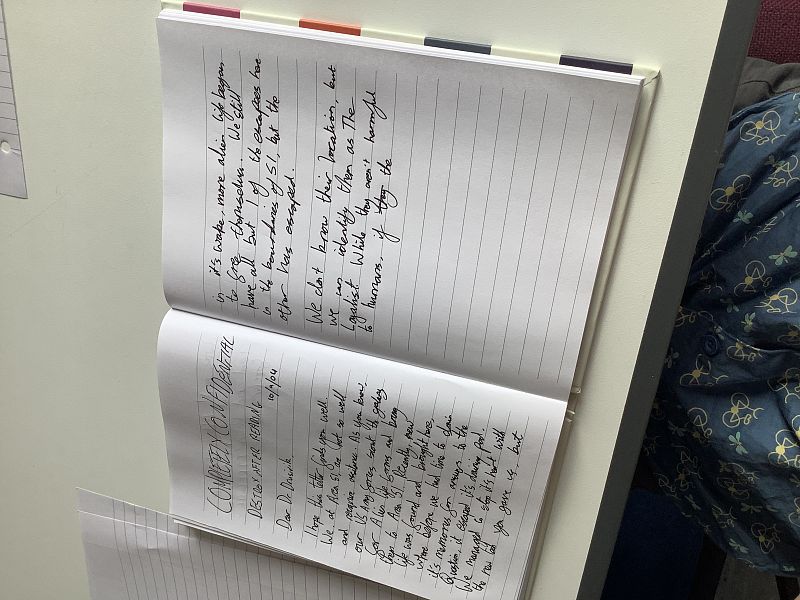 COMPLETLY CONFIDENTIAL
DESTROY AFTER READING
Dear Dr.
I hope this letter finds you well.
We at Area 51 are not so well
and require assistance. As you know,
our US Army forces scout the galaxy
for Alien life forms and bring
them to Area 51. Recently new
life was found and brought here,
where before we had time to
it's memories for answers to the
Question, it escaped it's
We managed to stop it's heart with
the new tool you gave us, but
in it's wake, more alien life began
to free themselves. We still
have all but 1 of the escapees here
in the boundaries of 51, but the
other has escaped.
We don't know their location, but
we can identify them as The
Logalist. While they aren't harmful
to humans, if they the